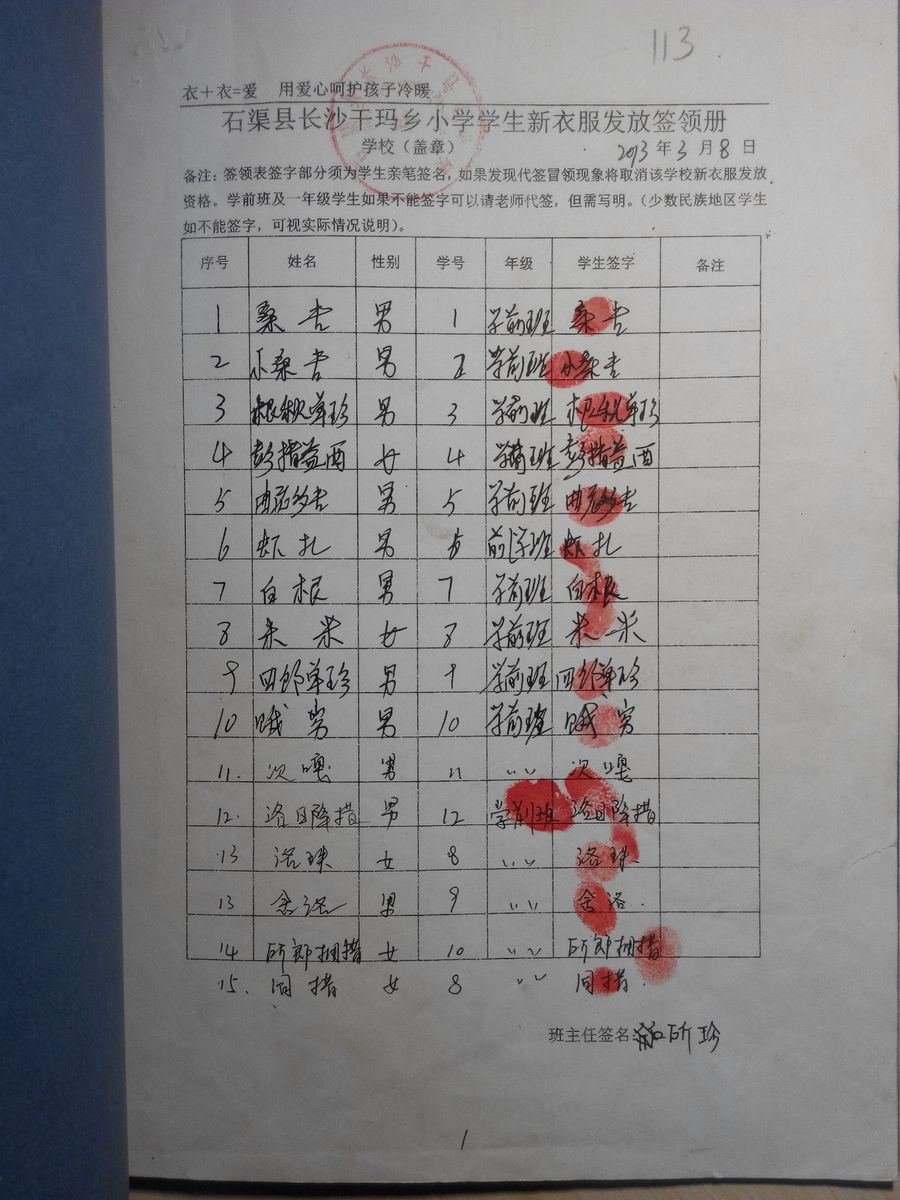 113.
衣+衣=爱 用爱心呵护孩子冷暖
石渠县长沙干玛乡小学学生新衣服发放签领册
学校（盖章） 2013 年 3 月 8 日
备注：签领表签字部分须为学生亲笔签名，如果发现代签冒领现象将取消该学校新衣服发放
资格。学前班及一年级学生如果不能签字可以请老师代签，但需写明。（少数民族地区学生
如不能签字，可视实际情况说明）。
序号 姓名 性别 学号 年级 学生签字 备注
1 桑吉 男 1 学前班 桑吉
2 小桑吉 男 2 学前班 小桑吉
3 根秋单珍 男 3 学前班 根秋单珍
4 彭措益西 女 4 学前班 彭措益西
5 男 5 学前班
6 虾扎 男 6 前学班 虾扎
7 白根 男 7 学前班 白根
8 女 8 学前班
9 四郎单珍 男 9 学前班 四郎单珍
10 哦穷 男 10 学前班 哦穷
11. 次嘎 男 11 〃 次嘎
12. 洛日降措 男 12 学前班 洛日降措
13 洛珠 女 8 〃 洛珠
13 舍洛 男 9 〃 舍洛.
14 所郎拥措 女 10 〃 所郎拥措
15. 女 8 〃
班主任签名:
1